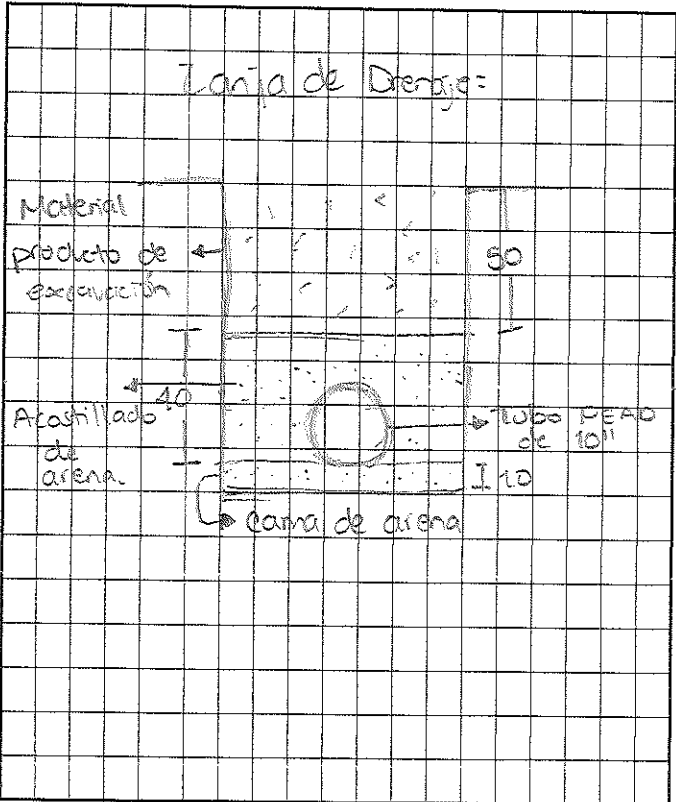 Zanja de Drenaje:
Material
producto de
excavación
50
40
Acostillado
de
arena.
Tubo PEAD
de 10"
10
cama de arena